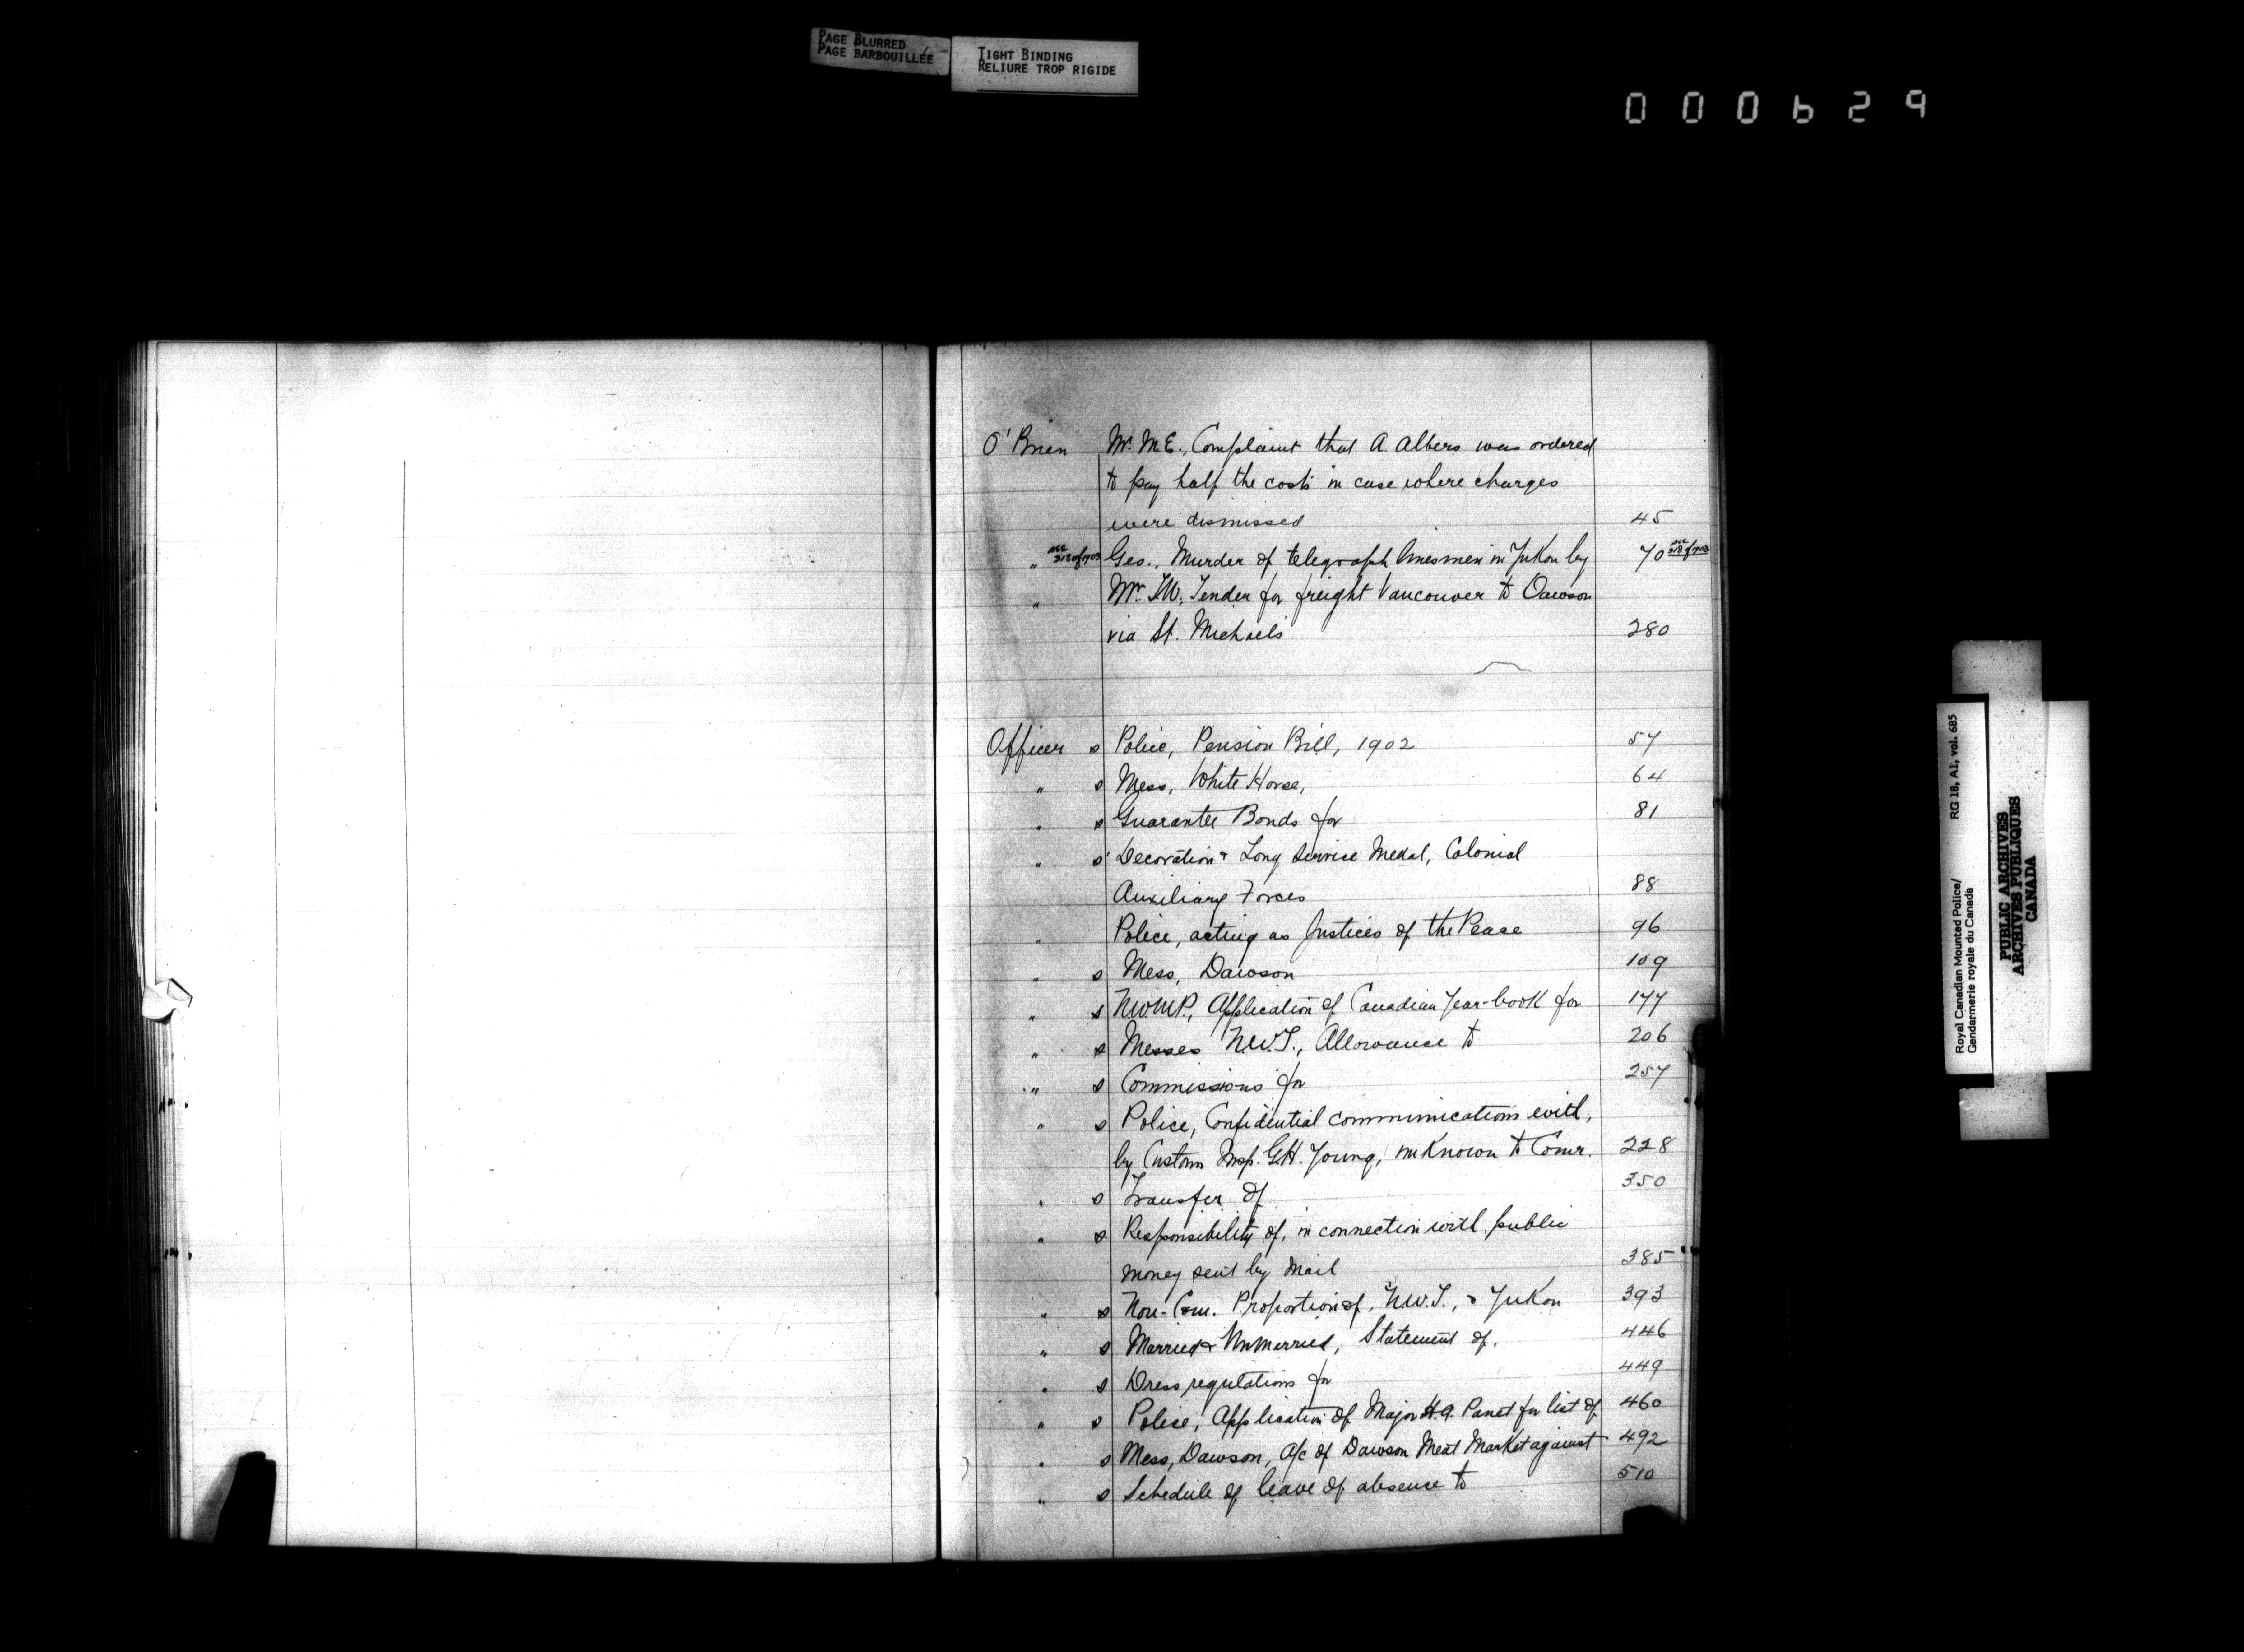 PAGE BLURRED
PAGE BARBOUILLÉE
TIGHT BINDING
RELIURE TROP RIGIDE
000629
O'Brien Mr. M.E., Complaint that A. Albers was ordered
to pay half the costs in case where charges
were dismissed 45
" see 318 of 1903 Geo., Murder of telegraph linesmen in Yukon by 70 see 318 of 1903
" Mr. T.W., Tender for freight Vancouver to Dawson
via St. Michaels 280
Officer s Police, Pension Bill, 1902 57
" s Mess, White Horse, 64
" s Guarantee Bonds for 81
" s Decoration & Long Service Medal, Colonial
Auxiliary Forces 88
" Police, acting as Justices of the Peace 96
" s Mess, Dawson 109
" s NWMP., Application of Canadian Year-book for 177
" s Messes N.W.T., Allowance to 206
" s Commissions for 257
" s Police, Confidential communications with,
by Customs Insp. G.H. Young, unknown to Comr. 228
" s Transfer of 350
" s Responsibility of, in connection with public
money sent by Mail 385
" s Non-Com. Proportion of, N.W.T., & Yukon 393
" s Married & Unmarried, Statement of, 446
" s Dress regulations for 449
" s Police, Application of Major H.A. Panet for list of 460
" s Mess, Dawson, A/c of Dawson Meat Market against 492
" s Schedule of leave of absence to 510
Royal Canadian Mounted Police/ RG 18, A1, vol. 685
Gendarmerie royale du Canada
PUBLIC ARCHIVES
ARCHIVES PUBLIQUES
CANADA